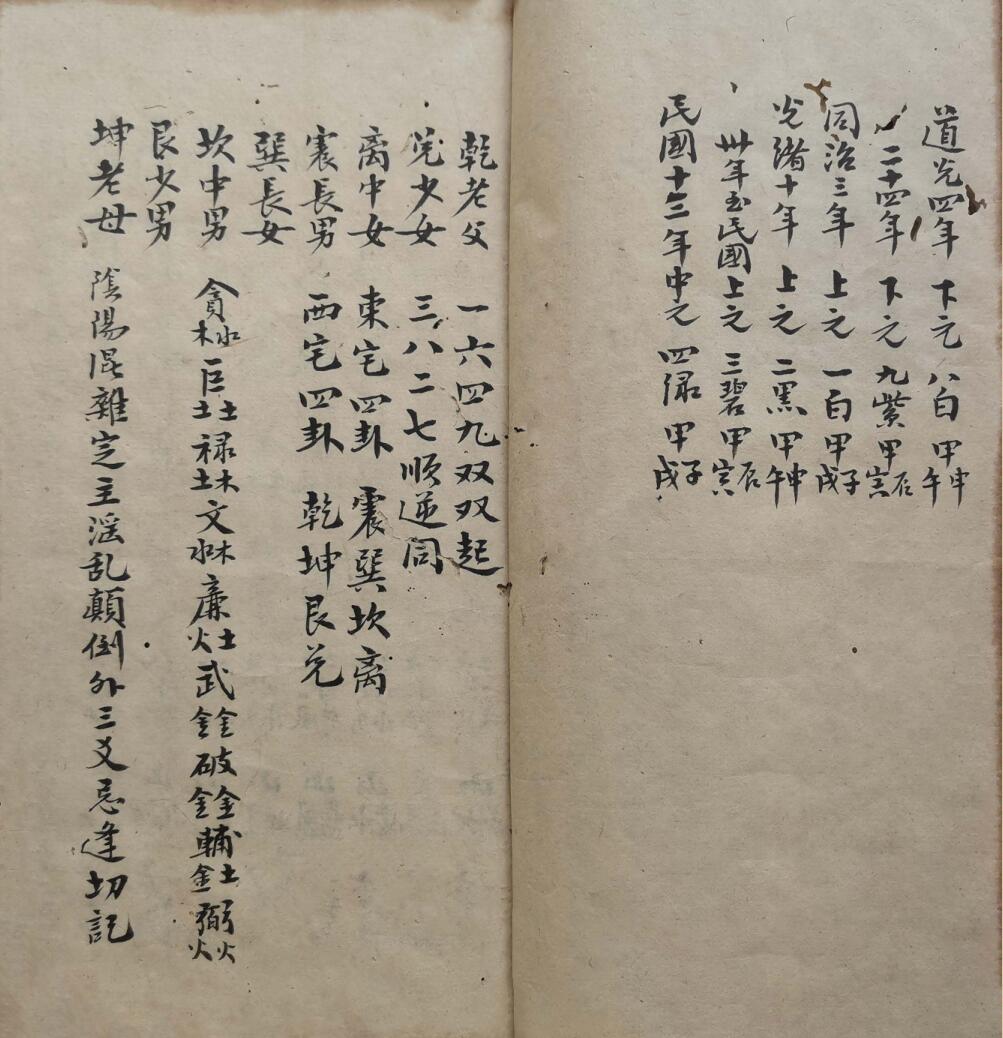 道光四年 下元 八白 甲申午
二十四年 下元 九紫 甲辰寅
同治三年 上元 一白 甲子戌
光緒十年 上元 二黑 甲申午
卅年至民國 上元 三碧 甲辰寅
民國十三年 中元 四绿 甲子戌
乾老父 一六四九双双起
兑少女 三八二七順逆同
离中女 東宅四卦 震巽坎离
震長男 西宅四卦 乾坤艮兑
巽長女
坎中男 貪水木巨土土禄木土文木水廉土火武金金破金金輔土金弼火火
艮少男
坤老母 陰陽混雜定主淫乱顛倒外三爻忌逢切記